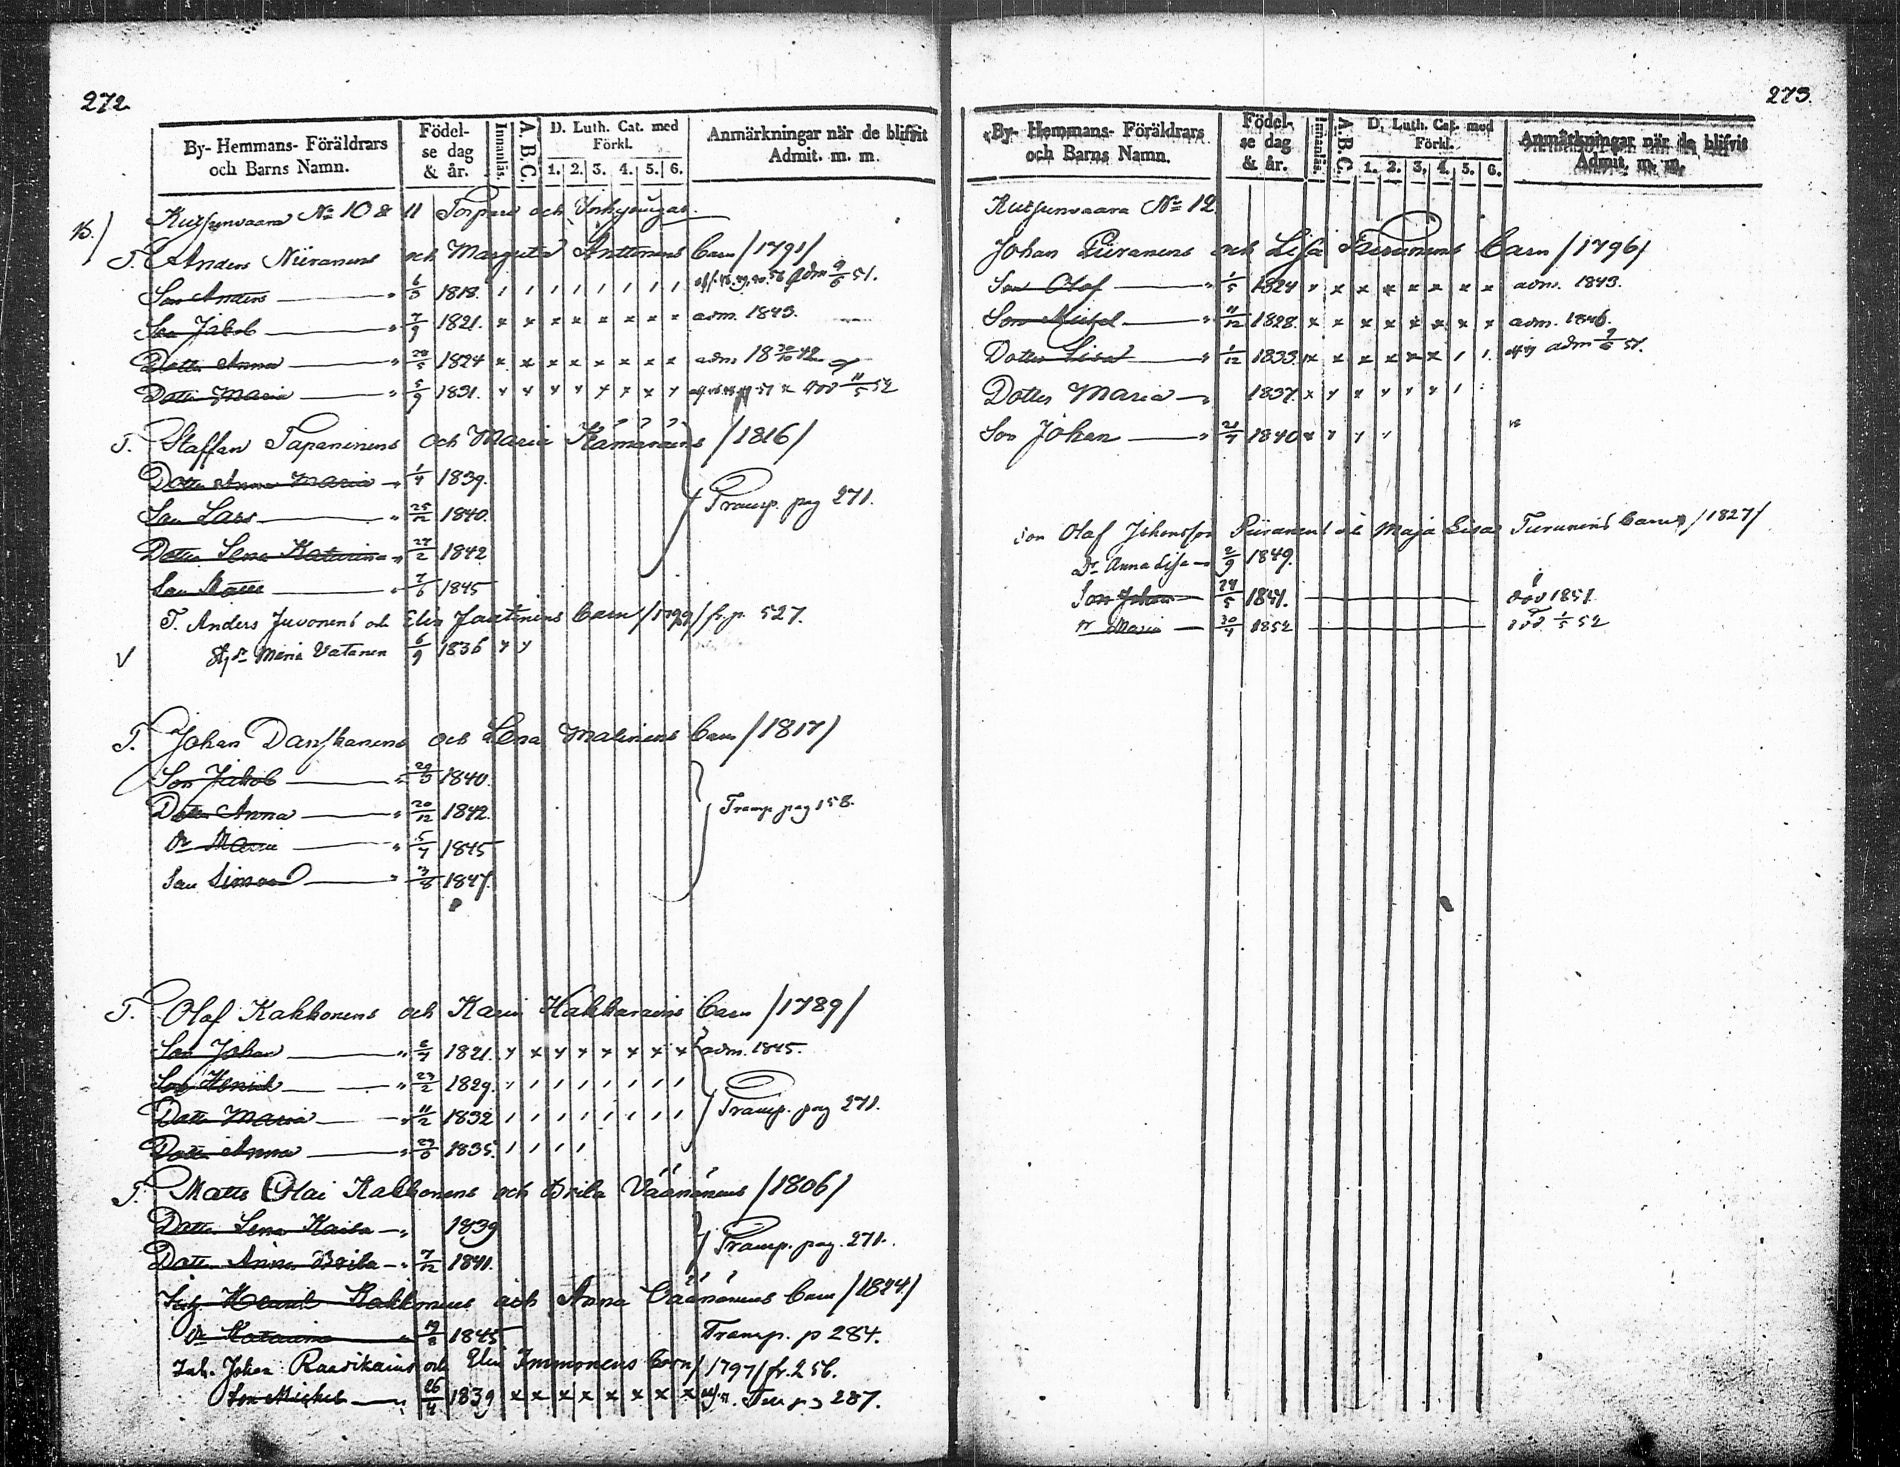 272
By- Hemmans- Föräldrars och Barns Namn.
Födelse dag & år.
Innanläs.
A.B.C.
D. Luth. Cat. med Förkl.
1. 2. 3. 4. 5. 6.
Anmärkningar när de blifvit Admit. m. m.
Kutsunvaara No 10 & 11 Torpare och
T. Anders Niiranens och Margeta Anttonens Barn /1791/
Son Anders 6/3 1818. adm 51.
Son Jakob 7/9 1821. adm. 1843.
Dotter Anna 1824 adm 18 42
Dotter Maria 5/9 1831. 11/5 52
T. Staffan Tapaninens och Maria Hämäräins /1816/
Dotter Anna Maria 1/4 1839.
Son Lars 25/12 1840. Transp. pag 271.
Dotter Lena Katarina 27/2 1842
Son Matts 1845
T. Anders Juvonens och Elis Barn /1799/ fr. p. 527.
Maria Vatanen 6/9 1836
T. Johan Danskanens och Lena Malinens Barn /1817/
Son Jakob 29/3 1840.
Dotter Anna 20/12 1842. Transp pag 158.
Dr Maria 5/4 1845
Son Simon 3/8 1847.
T. Olaf Kakkonens och Karin Hakkarains Barn /1789/
Son Johan 6/4 1821. adm. 1845.
Son Henrik 23/2 1829.
Dotter Maria 11/2 1832 Transp. pag 271.
Dotter Anna 1835.
T. Matts Olai Kakkonens och Brita Väänänens /1806/
Dotter Lena Kaisa 1839 Transp. pag. 271.
Dotter Anna Brita 7/12 1841.
Henrik Kakkonens och Anna Väänänens Barn /1824/
Dr Katarina 19/8 1845 Transp. p 284.
Inh. Johan Raasikains och Elin Immonens Barn /1797/ fr. 256.
Son Michel 26/4 1839 p 287.
273.
By- Hemmans- Föräldrars och Barns Namn.
Födelse dag & år.
Innanläs.
A.B.C.
D. Luth. Cat. med Förkl.
1. 2. 3. 4. 5. 6.
Anmärkningar när de blifvit Admit. m. m.
Kutsunvaara No 12
Johan Piiranens och Lisa Barn /1796/
Son Olof 1/5 1824 adm. 1843.
Son Michel 11/12 1828. adm. 1846.
Dotter Lisa 1/12 1833. adm 51.
Dotter Maria 1837.
Son Johan 21/7 1840
Son Olaf Johansson Piiranens och Maja Lisa Turunens Barn /1827/
Dr Anna Lisa 2/9 1849.
Son Johan 24/5 1851. död 1851
Dr Maria 30/4 1852 död 1/5 52